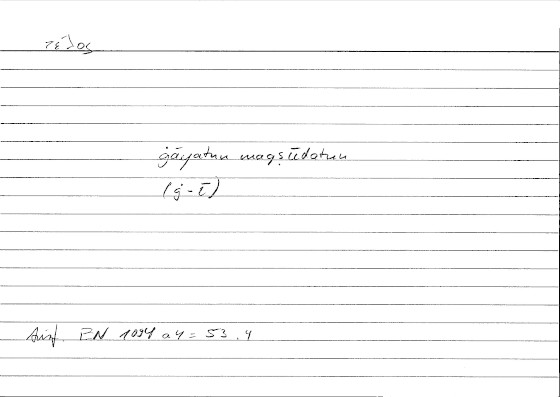 τέλος
ġāyatun maqṣūdatun
(ġ-ī)
Arist. EN 1094 a 4 = 53.4